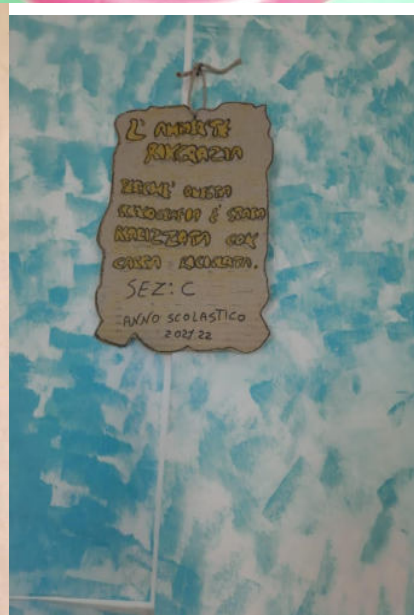 L' AMBIENTE
RINGRAZIA
PERCHE' QUESTA
SCENOGRAFIA È STATA
REALIZZATA CON
CARTA RICICLATA.
SEZ: C
ANNO SCOLASTICO
2021.22